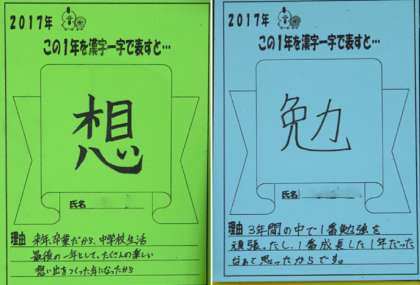 2017年
この1年を漢字一字で表すと…
想
氏名
理由 来年、卒業だから、中学校生活
最後の一年として、たくさんの楽しい
想い出をつくった年になったから
2017年
この1年を漢字一字で表すと…
勉
氏名
理由 3年間の中で1番勉強を
頑張ったし、1番成長した1年だった
なぁて思ったからです。